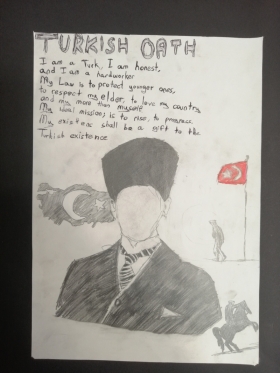 TURKISH OATH
I am a Turk, I am honest,
and I am a hardworker
My Law is to protect younger ones,
to respect my elder, to love my country
and my more than myself
My ideal mission, is to rise, to progress.
My, existence shall be a gift to the
Turkish existence